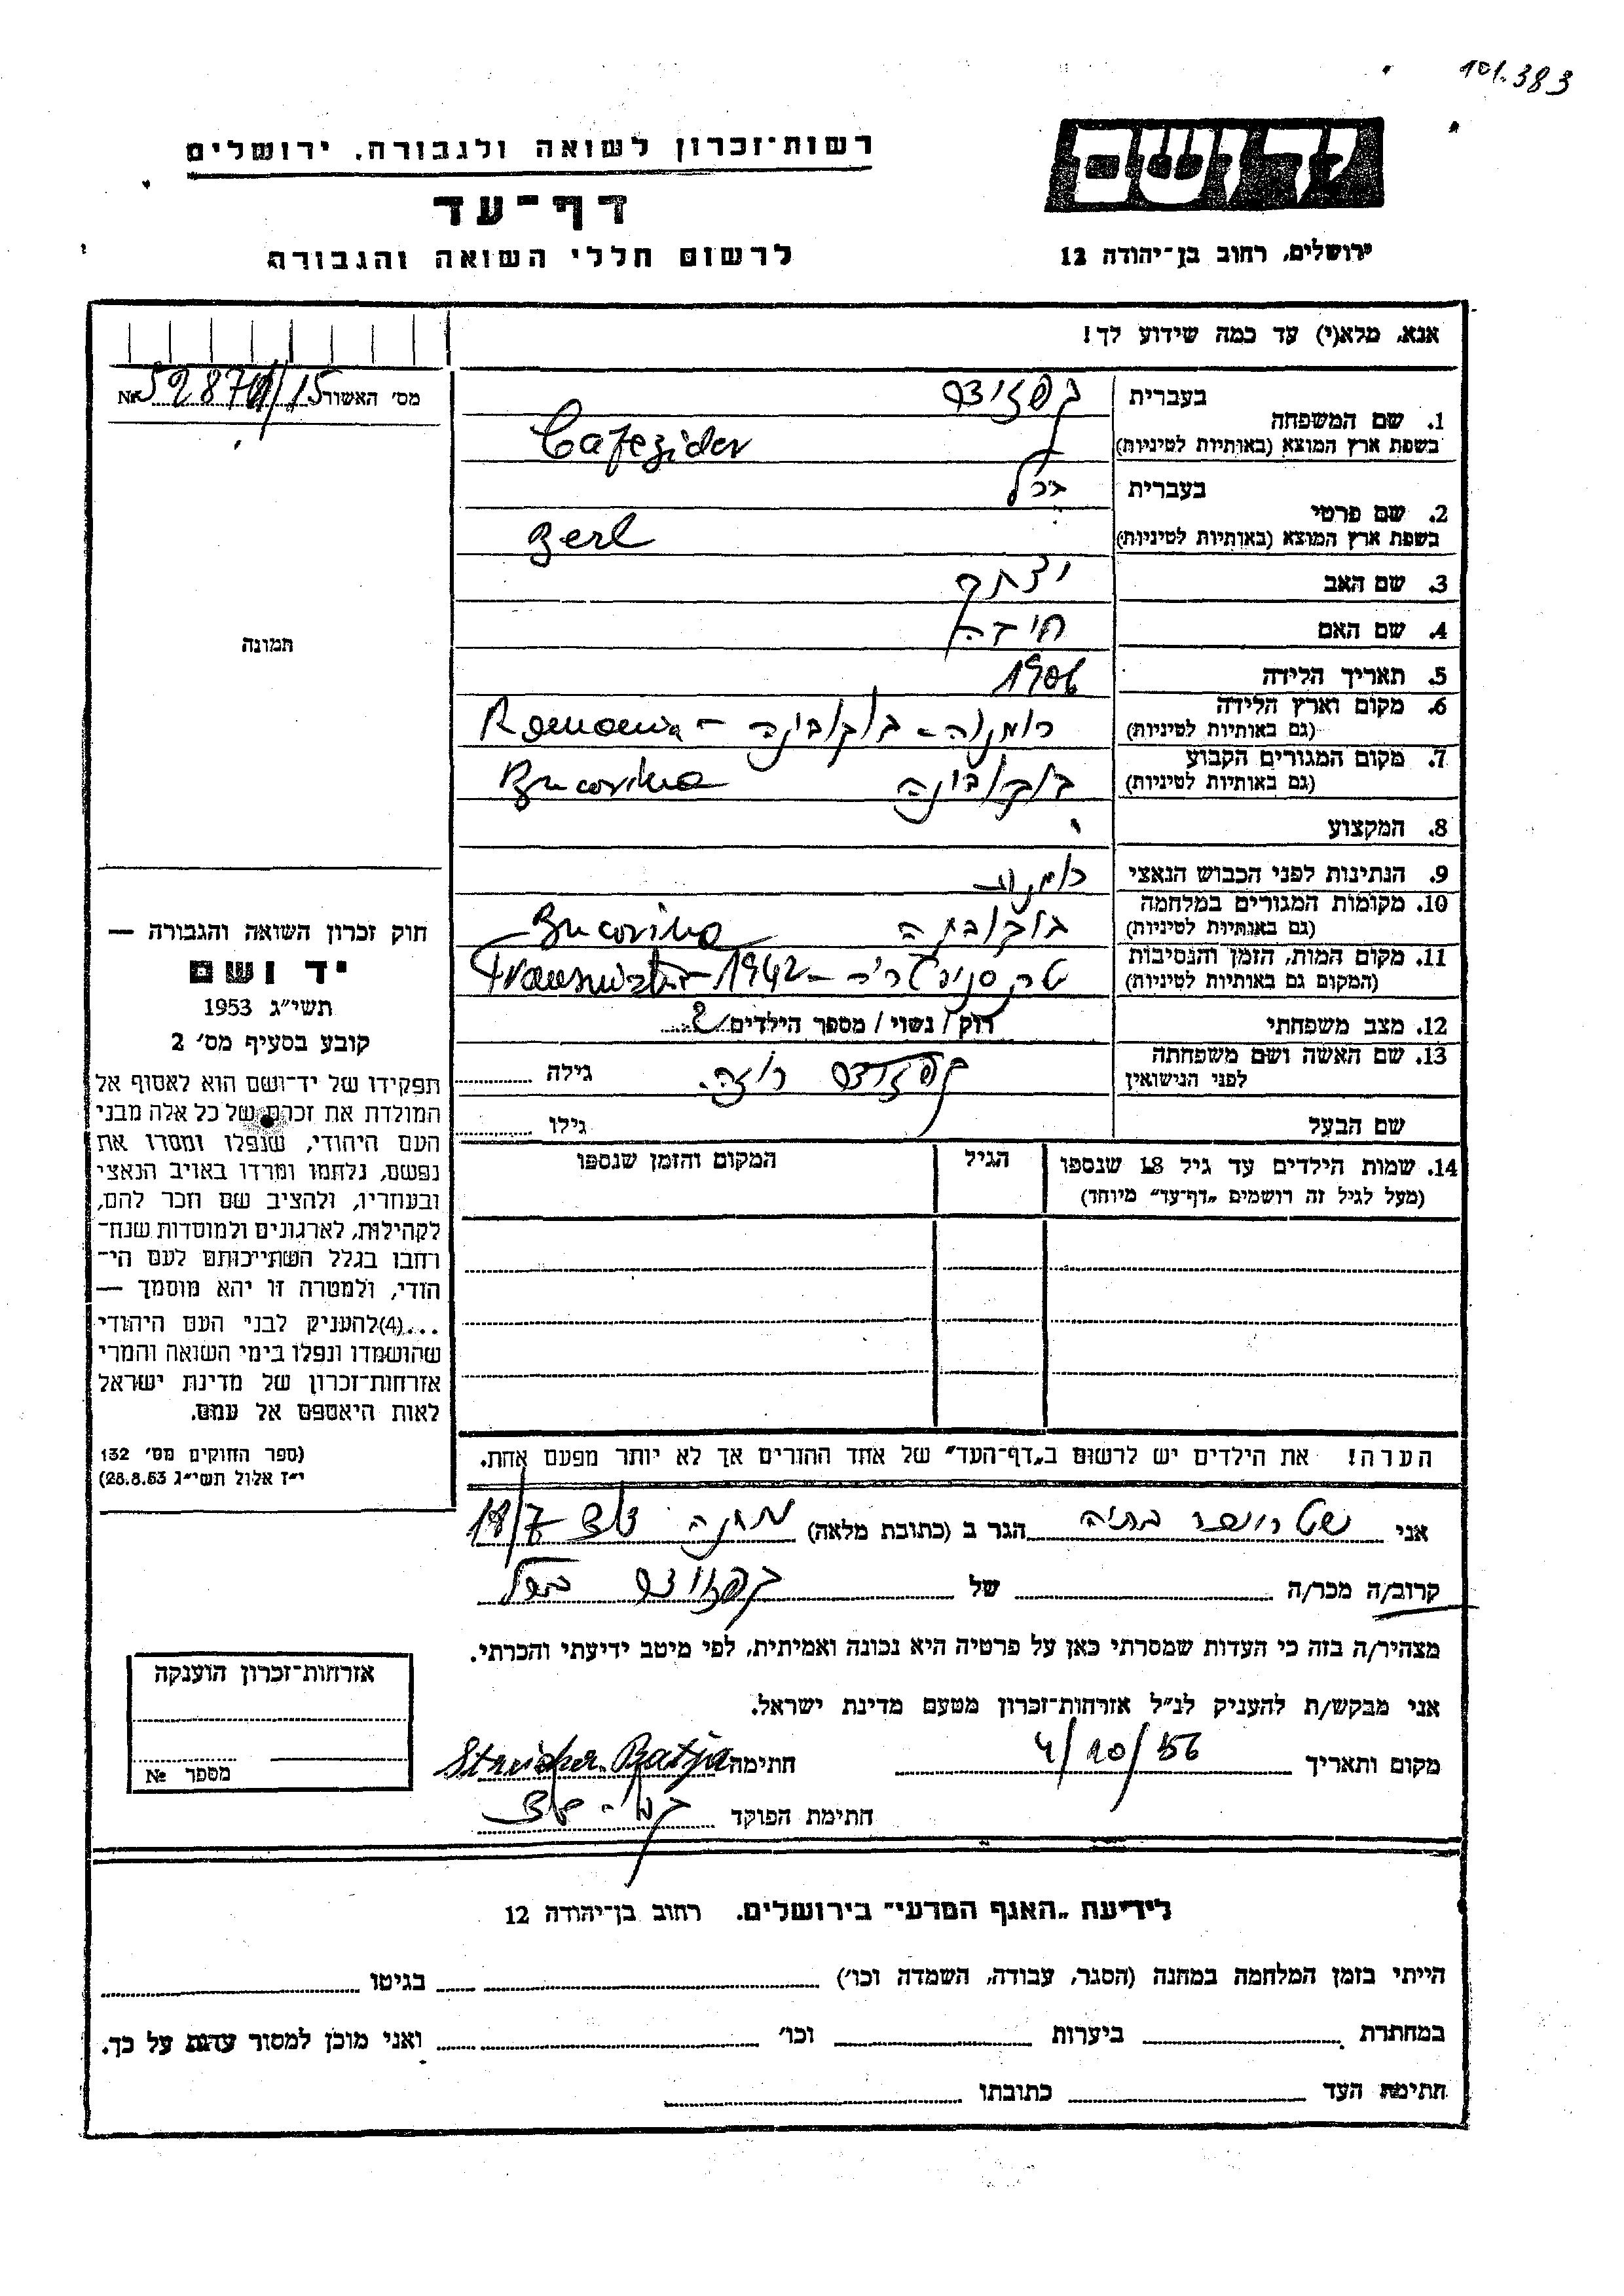 101.383
רשות־זכרון לשואה ולגבורה, ירושלים
יד ושם
דף־עד
לרשום חללי השואה והגבורה
ירושלים, רחוב בן־יהודה 12
אנא, מלא(י) עד כמה שידוע לך!
מס׳ האשור № 15
בעברית
1. שם המשפחה
בשפת ארץ המוצא (באותיות לטיניות) Cafezider
בעברית ברל
2. שם פרטי
בשפת ארץ המוצא (באותיות לטיניות) Berl
3. שם האב יצחק
4. שם האם
5. תאריך הלידה 1906
6. מקום וארץ הלידה
(גם באותיות לטיניות) רומניה - בוקובינה - Romania
7. מקום המגורים הקבוע
(גם באותיות לטיניות) בוקובינה Bucovina
8. המקצוע
9. הנתינות לפני הכבוש הנאצי
10. מקומות המגורים במלחמה
(גם באותיות לטיניות) בוקובינה Bucovina
11. מקום המות, הזמן והנסיבות
(המקום גם באותיות לטיניות) 1942
12. מצב משפחתי רוק / נשוי / מספר הילדים 2
13. שם האשה ושם משפחתה
לפני הנישואין רוזה גילה
שם הבעל גילו
14. שמות הילדים עד גיל 18 שנספו הגיל המקום והזמן שנספו
(מעל לגיל זה רושמים „דף־עד״ מיוחד)
הערה! את הילדים יש לרשום ב„דף־העד״ של אחד ההורים אך לא יותר מפעם אחת.
תמונה
חוק זכרון השואה והגבורה —
יד ושם
תשי״ג 1953
קובע בסעיף מס׳ 2
תפקידו של יד־ושם הוא לאסוף אל
המולדת את זכרם של כל אלה מבני
העם היהודי, שנפלו ומסרו את
נפשם, נלחמו ומרדו באויב הנאצי
ובעוזריו, ולהציב שם וזכר להם,
לקהילות, לארגונים ולמוסדות שנח־
רבו בגלל השתייכותם לעם הי־
הודי, ולמטרה זו יהא מוסמך —
...(4)להעניק לבני העם היהודי
שהושמדו ונפלו בימי השואה והמרי
אזרחות־זכרון של מדינת ישראל
לאות היאספם אל עמם.
(ספר החוקים מס׳ 132
י״ז אלול תשי״ג 28.8.53)
אני בתיה הגר ב (כתובת מלאה) 18/7
קרוב/ה מכר/ה של ברל
מצהיר/ה בזה כי העדות שמסרתי כאן על פרטיה היא נכונה ואמיתית, לפי מיטב ידיעתי והכרתי.
אני מבקש/ת להעניק לנ״ל אזרחות־זכרון מטעם מדינת ישראל.
מקום ותאריך 4/10/56 חתימה Batja
חתימת הפוקד
אזרחות־זכרון הוענקה
מספר №
לידיעת „האגף המדעי״ בירושלים. רחוב בן־יהודה 12
הייתי בזמן המלחמה במחנה (הסגר, עבודה, השמדה וכו׳) בגיטו
במחתרת ביערות וכו׳ ואני מוכן למסור עדות על כך.
חתימת העד כתובתו